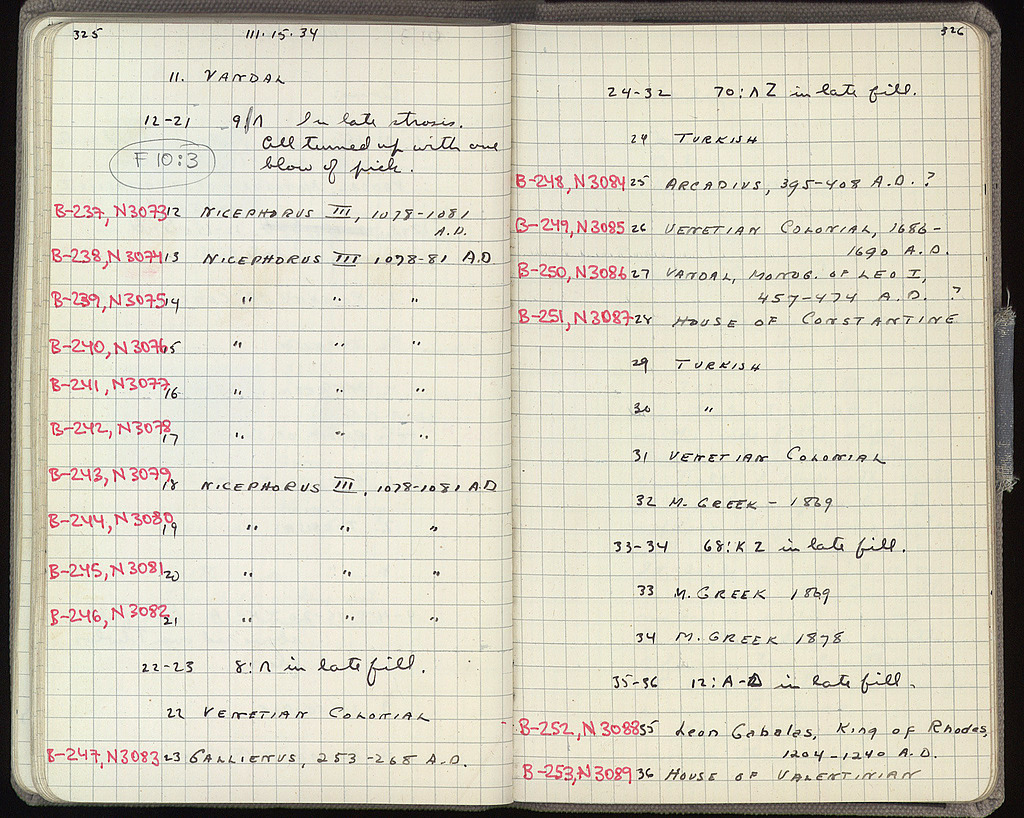 325 III.15.34
11. VANDAL
12-21 9/Λ In late strosis.
All turned up with one
F 10:3 blow of pick.
B-237, N3073 12 NICEPHORUS III, 1078-1081
A.D.
B-238, N3074 13 NICEPHORUS III 1078-81 A.D
B-239, N3075 14 " " "
B-240, N3076 15 " " "
B-241, N3077 16 " " "
B-242, N3078 17 " " "
B-243, N3079 18 NICEPHORUS III, 1078-1081 A.D
B-244, N3080 19 " " "
B-245, N3081 20 " " "
B-246, N3082 21 " " "
22-23 8:Λ in late fill.
22 VENETIAN COLONIAL
B-247, N3083 23 GALLIENUS, 253-268 A.D.
326
24-32 70:ΛZ in late fill.
24 TURKISH
B-248, N3084 25 ARCADIUS, 395-408 A.D. ?
B-249, N3085 26 VENETIAN COLONIAL, 1686-
1690 A.D.
B-250, N3086 27 VANDAL, MONOG. OF LEO I,
457-474 A.D. ?
B-251, N3087 28 HOUSE OF CONSTANTINE
29 TURKISH
30 "
31 VENETIAN COLONIAL
32 M. GREEK - 1869
33-34 68:KZ in late fill.
33 M. GREEK 1869
34 M. GREEK 1878
35-36 12:A-Δ in late fill.
B-252, N3088 35 Leon Gabalas, King of Rhodes,
1204-1240 A.D.
B-253, N3089 36 HOUSE OF VALENTINIAN